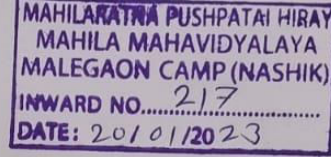 MAHILARATNA PUSHPATAI HIRAY
MAHILA MAHAVIDYALAYA
MALEGAON CAMP (NASHIK)
INWARD NO. 217
DATE: 20/01/2023